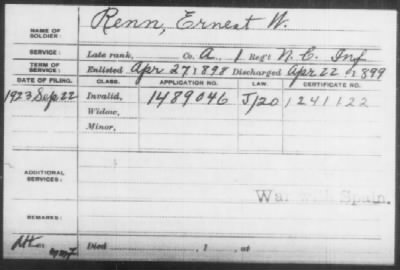 Renn, Ernest W.
NAME OF SOLDIER:
SERVICE: Late rank, Co. A, 1 Reg't N. C. Inf
TERM OF SERVICE: Enlisted Apr 27, 1898 Discharged Apr 22, 1899
DATE OF FILING. CLASS. APPLICATION NO. LAW. CERTIFICATE NO.
1923 Sep 22 Invalid, 1489046 J120 1241122
Widow,
Minor,
ADDITIONAL SERVICES:
War with Spain.
REMARKS:
Died , 1 , at